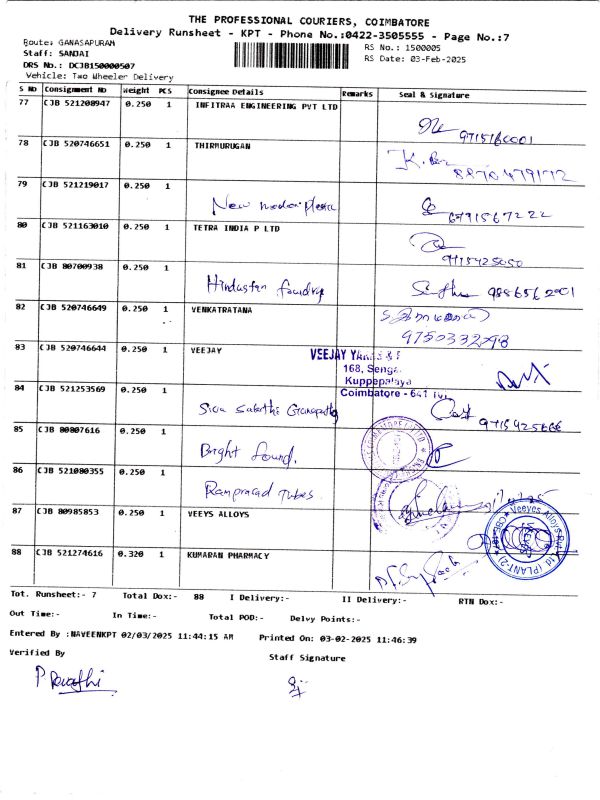 THE PROFESSIONAL COURIERS, COIMBATORE
Delivery Runsheet - KPT - Phone No.:0422-3505555 - Page No.:7
Route: GANASAPURAM
RS No.: 1500005
Staff: SANJAI
RS Date: 03-Feb-2025
DRS No.: DCJB150000507
Vehicle: Two Wheeler Delivery
S No Consignment No Weight PCS Consignee Details Remarks Seal & Signature
77 CJB 521208947 0.250 1 INFITRAA ENGINEERING PVT LTD
9715160001
78 CJB 520746651 0.250 1 THIRMURUGAN
8870479172
79 CJB 521219017 0.250 1
New
6791567222
80 CJB 521163010 0.250 1 TETRA INDIA P LTD
9715425050
81 CJB 80700938 0.250 1
Hindustan foundry
9886562001
82 CJB 520746649 0.250 1 VENKATRATANA
9750332298
83 CJB 520746644 0.250 1 VEEJAY
VEEJAY
168,
Kuppepalaya
Coimbatore - 641
84 CJB 521253569 0.250 1
Siva Sakthi Ganapathy
9715425666
85 CJB 80807616 0.250 1
Bright found.
86 CJB 521080355 0.250 1
Ramprasad Tubes
87 CJB 80985853 0.250 1 VEEYS ALLOYS
Veeyes Alloys Pvt. Ltd (PLANT-2)
88 CJB 521274616 0.320 1 KUMARAN PHARMACY
Tot. Runsheet:- 7 Total Dox:- 88 I Delivery:- II Delivery:- RTN Dox:-
Out Time:- In Time:- Total POD:- Delvy Points:-
Entered By :NAVEENKPT 02/03/2025 11:44:15 AM Printed On: 03-02-2025 11:46:39
Verified By Staff Signature
P. Revathi